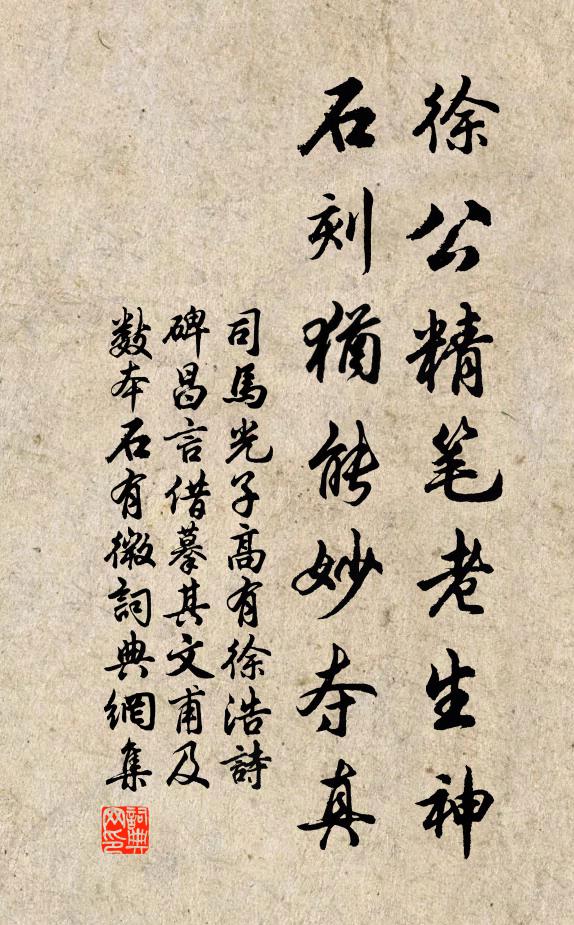 徐公精笔老生神
石刻猶能妙夺真
司馬光子高有徐浩詩
碑昌言借摹其文甫及
数本石有微詞典網集
詞典网印